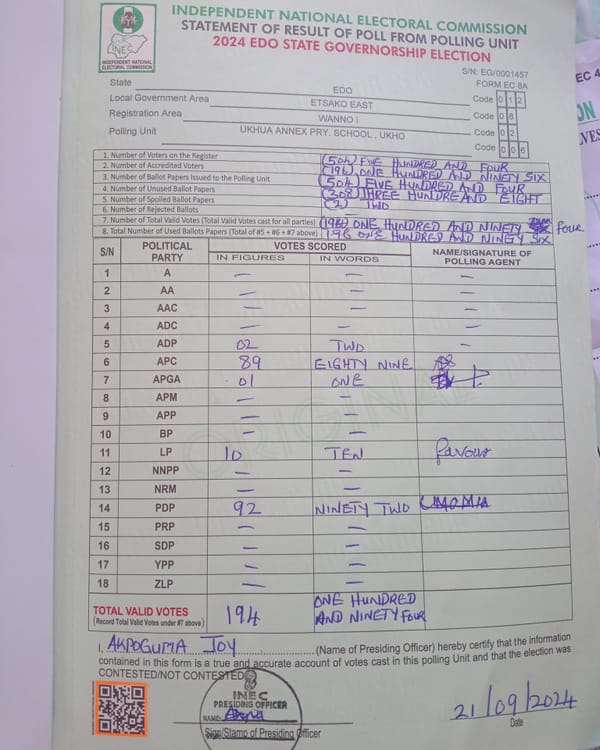 INDEPENDENT NATIONAL ELECTORAL COMMISSION
STATEMENT OF RESULT OF POLL FROM POLLING UNIT
2024 EDO STATE GOVERNORSHIP ELECTION
INEC
INDEPENDENT NATIONAL
ELECTORAL COMMISSION
S/N: EG/0001457
FORM EC 8A
State EDO Code 0 1 2
Local Government Area ETSAKO EAST Code 0 8
Registration Area WANNO I Code 0 2
Polling Unit UKHUA ANNEX PRY. SCHOOL , UKHO Code 0 0 6
1. Number of Voters on the Register (504) FIVE HUNDRED AND FOUR
2. Number of Accredited Voters (196) ONE HUNDRED AND NINETY SIX
3. Number of Ballot Papers Issued to the Polling Unit (504) FIVE HUNDRED AND FOUR
4. Number of Unused Ballot Papers (308) THREE HUNDRE AND EIGHT
5. Number of Spoiled Ballot Papers (2) TWO
6. Number of Rejected Ballots —
7. Number of Total Valid Votes (Total Valid Votes cast for all parties) ONE HUNDRED AND NINETY FOUR
8. Total Number of Used Ballots Papers (Total of #5 + #6 + #7 above) 196 ONE HUNDRED AND NINETY SIX
S/N POLITICAL PARTY VOTES SCORED NAME/SIGNATURE OF POLLING AGENT
IN FIGURES IN WORDS
1 A — — —
2 AA — — —
3 AAC — — —
4 ADC — — —
5 ADP 02 TWO —
6 APC 89 EIGHTY NINE
7 APGA 01 ONE
8 APM — —
9 APP — —
10 BP — —
11 LP 10 TEN favour
12 NNPP — —
13 NRM — —
14 PDP 92 NINETY TWO
15 PRP — —
16 SDP — —
17 YPP — —
18 ZLP — —
ORIGINAL
TOTAL VALID VOTES 194 ONE HUNDRED AND NINETY FOUR
(Record Total Valid Votes under #7 above)
I, AKPOGUMA JOY (Name of Presiding Officer) hereby certify that the information
contained in this form is a true and accurate account of votes cast in this polling Unit and that the election was
CONTESTED/NOT CONTESTED
INEC
PRESIDING OFFICER
NAME:
Sign/Stamp of Presiding Officer
21/09/2024
Date
EC 4
ON
VES